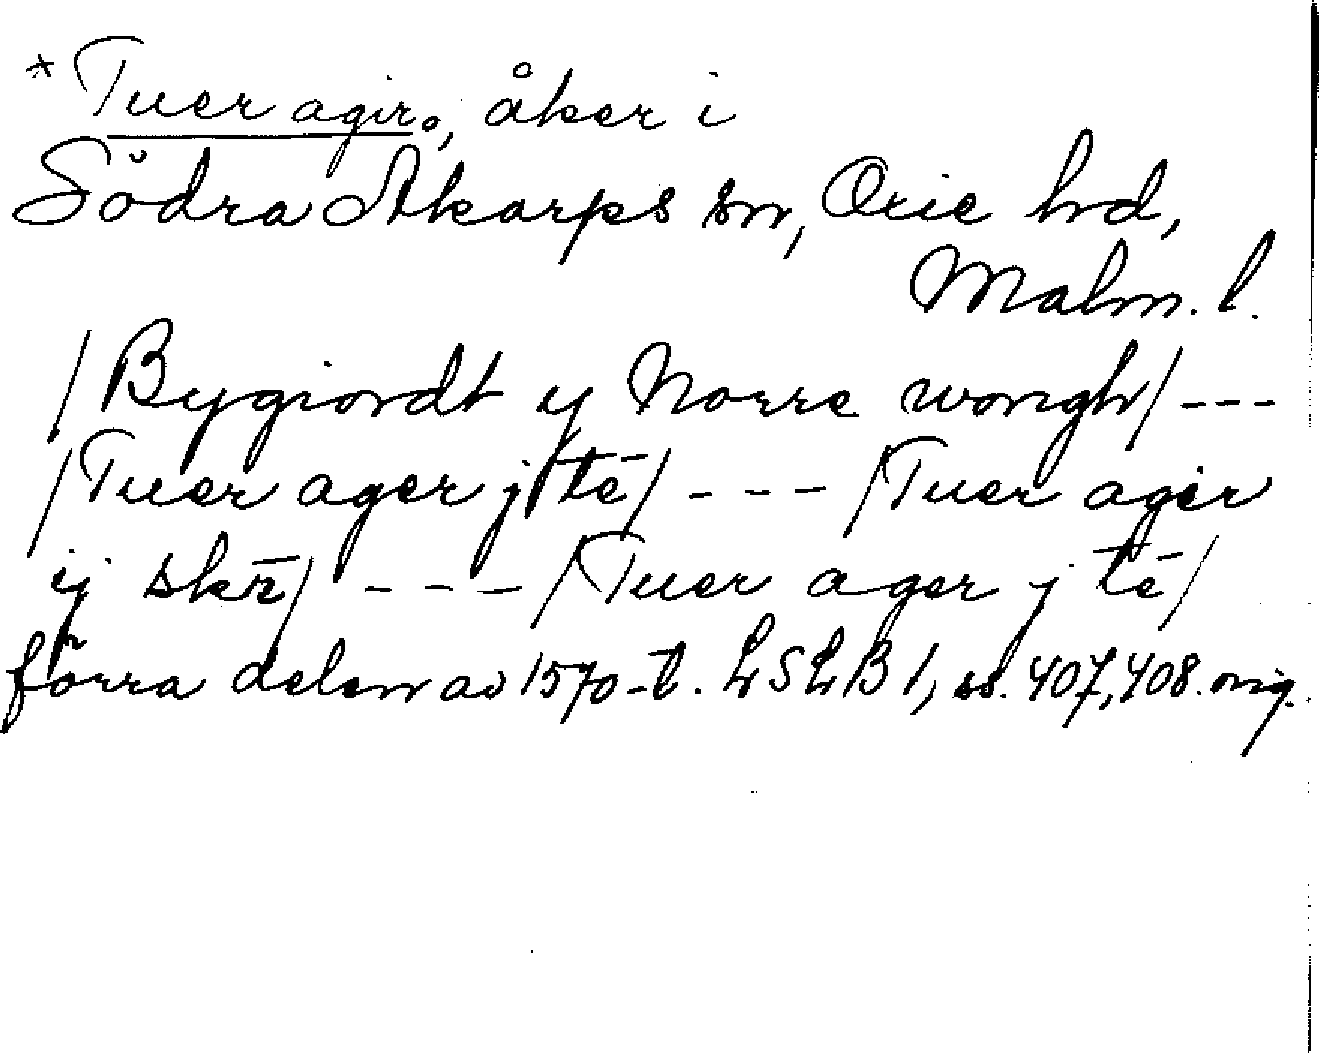 *Tuer agir., åker i
Södra Åkarps sn, Oxie hrd,
Malm. l.
/Bygiordt y Norre wongh/ ---
/Tuer ager j tē/ --- /Tuer agir
ij skē/ --- /Tuer ager j tē/
förra delen av 1570-t. LSLB 1, ss. 407, 408. orig.